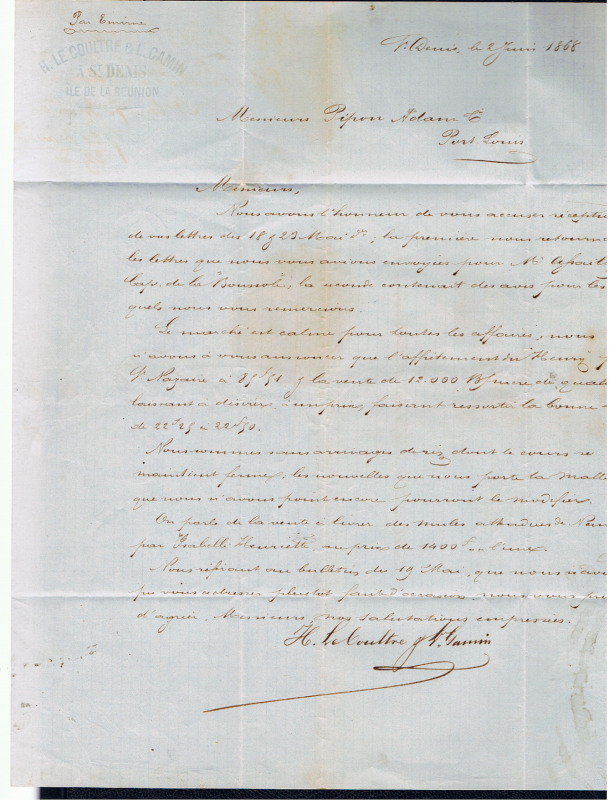 Par Emirne
H. LE COULTRE & L. GAMIN
A ST DENIS
ILE DE LA RÉUNION
St Denis, le 2 Juin 1868
Messieurs Pipon Adam &
Port Louis
Messieurs,
Nous avons l'honneur de vous accuser récepti
de vos lettres des 18 & 23 Mai dr; la première nous retourna
les lettres que nous vous avions envoyées pour Mr
Cap. de la "Boussole", la seconde contenant des avis pour les
quels nous vous remercions.
Le marché est calme pour toutes les affaires, nous
n'avons à vous annoncer que l'affrètement du Henry
St Nazaire à & la vente de 12.000 Bs sucre de qual
laissant à désirer, à un prix, faisant ressortir la bonne
de 22f25 à 22f50.
Nous sommes sans arrivages de riz dont le cours se
maintient ferme, les nouvelles que nous porte la malle
que nous n'avons point encore pourront le modifier.
On parle de la vente à livrer des mules attendues de
par Isabelle Henriette au prix de 1400f l'une.
Nous référant au bulletin du 19 Mai, que nous n'avo
pu vous adresser plustot faut d'occasion, nous vous pri
d'agréer, Messieurs, nos salutations empressées.
H. Le Coultre & L. Gamin